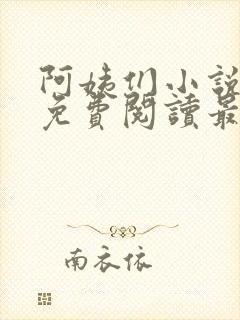 阿姨们小說
免費閱讀最
南衣依